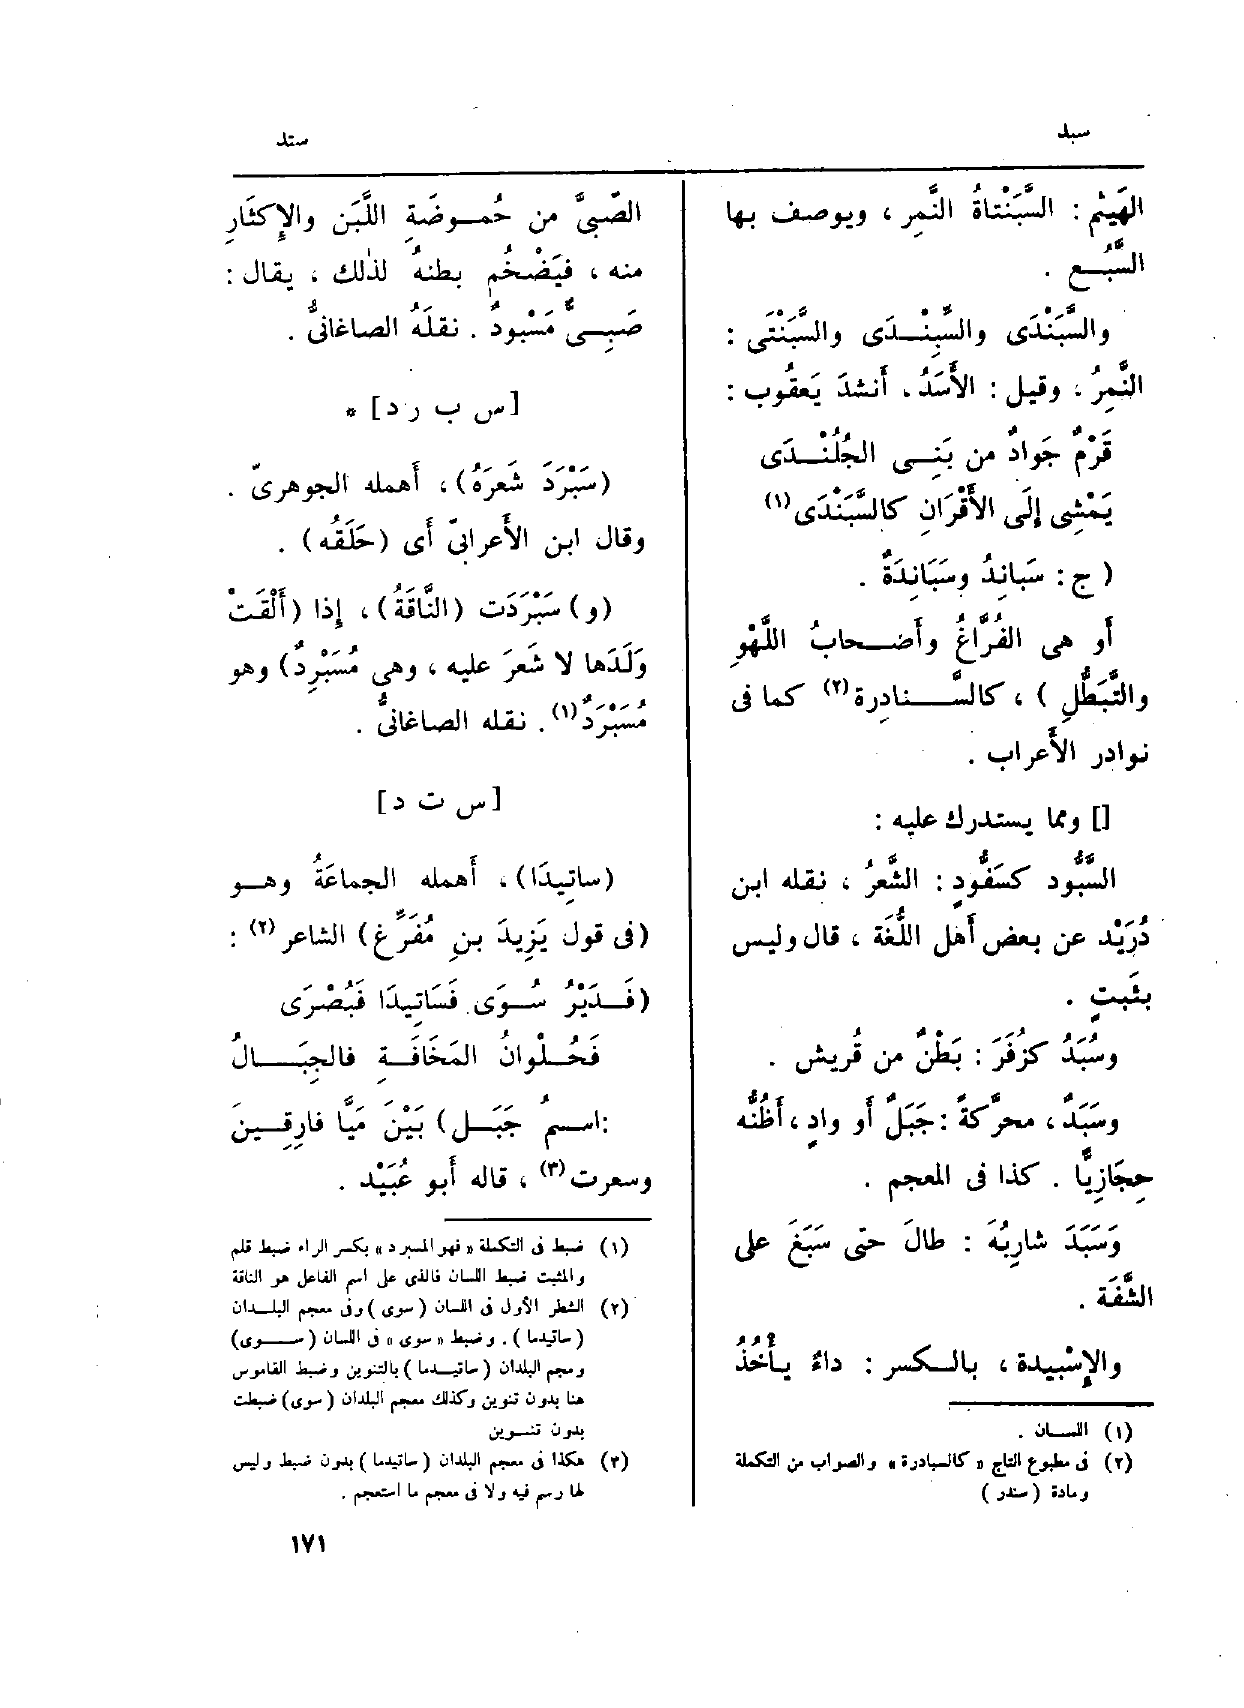 سبد
ستد
الهَيْثم : السَّبَنْتاةُ النَّمِر ، ويوصف بها
السَّبُع .
والسَّبَنْدَى والسِّبِنْدَى والسَّبَنْتَى :
النَّمِرُ ، وقيل : الأَسَدُ . أَنشدَ يَعقُوب :
قَرْمٌ جَوادٌ من بَنِى الجُلُنْدَى
يَمْشِى إِلَى الأَقْرَانِ كالسَّبَنْدَى(١)
( ج : سَبانِدُ وسَبَانِدَةٌ .
أَو هى الفُرَّاغُ وأَصْحابُ اللَّهْوِ
والتَّبَطُّلِ ) ، كالسَّنادِرة(٢) كما فى
نوادر الأَعراب .
[] ومما يستدرك عليه :
السَّبُّود كسَفُّودٍ : الشَّعرُ ، نقله ابن
دُرَيْد عن بعض أَهل اللُّغَة ، قال وليس
بثَبتٍ .
وسُبَدُ كزُفَرَ : بَطْنٌ من قُريش .
وسَبَدٌ ، محرَّكةً : جَبَلٌ أَو وادٍ ، أَظُنُّه
حِجَازِيًّا . كذا فى المعجم .
وَسَبَدَ شارِبُهَ : طالَ حتى سَبَغَ على
الشَّفَة .
والإِسْبِيدة ، بالكسر : داءٌ يأْخُذُ
(١) اللسان .
(٢) فى مطبوع التاج « كالسبادرة » والصواب من التكملة
ومادة ( سندر )
الصَّبىَّ من حُموضَةِ اللَّبَن والإِكثَارِ
منه ، فيَضْخُم بطنهُ لذٰلك ، يقال :
صَبِىٌّ مَسْبُودٌ . نقلَهُ الصاغانىُّ .
[س ب ر د] *
(سَبْرَدَ شَعرَهُ) ، أَهمله الجوهرىّ .
وقال ابن الأَعرابىّ أَى (حَلَقُه) .
(و) سَبْرَدَت (النَّاقَةُ) ، إِذا (أَلْقَتْ
وَلَدَها لا شَعرَ عليه ، وهى مُسَبْرِدٌ) وهو
مُسَبْرَدٌ(١) . نقله الصاغانىُّ .
[س ت د]
(ساتِيدَا) ، أَهمله الجماعَةُ وهو
(فى قول يَزِيدَ بنِ مُفَرِّغ) الشاعر(٢) :
(فَدَيْرُ سُوَى فَسَاتِيدَا فَبُصْرَى
فَحُلْوانُ المَخَافَةِ فالجِبَالُ
:اسمُ جَبَل) بَيْنَ مَيَّا فارِقِينَ
وسعرت(٣) ، قاله أَبو عُبَيْد .
(١) ضبط فى التكملة « فهو المسبرد » بكسر الراء ضبط قلم
والمثبت ضبط اللسان فالذى على اسم الفاعل هو الناقة
(٢) الشطر الأول فى اللسان ( سوى ) وفى معجم البلدان
( ساتيدما ) . وضبط « سوى » فى اللسان ( سوى )
ومعجم البلدان ( ساتيدما ) بالتنوين وضبط القاموس
هنا بدون تنوين وكذلك معجم البلدان ( سوى ) ضبطت
بدون تنوين
(٣) هكذا فى معجم البلدان ( ساتيدما ) بدون ضبط وليس
لها رسم فيه ولا فى معجم ما استعجم .
١٧١